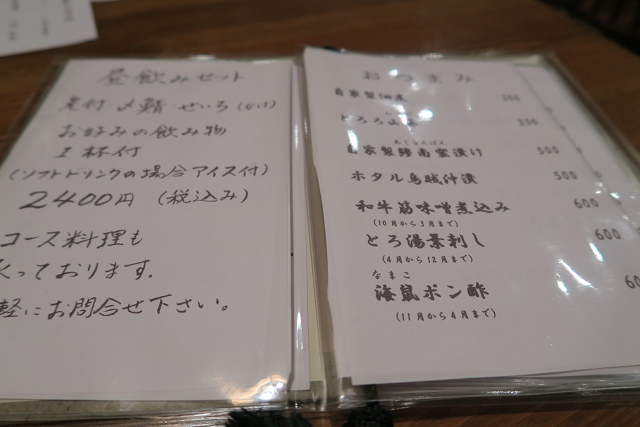 昼飲みセット
先付 〆鯖 せいろ(かけ)
お好みの飲み物
1杯付
(ソフトドリンクの場合アイス付)
2400円 (税込み)
コース料理も
っております.
軽にお問合せ下さい。
おつまみ
自家製佃煮 300
とろろ 350
あじなんばん
自家製鯵南蛮漬け 500
ホタル烏賊汁漬 500
和牛筋味噌煮込み 600
(10月から3月まで)
とろ湯葉刺し 600
(4月から12月まで)
なまこ
海鼠ポン酢
(11月から4月まで)